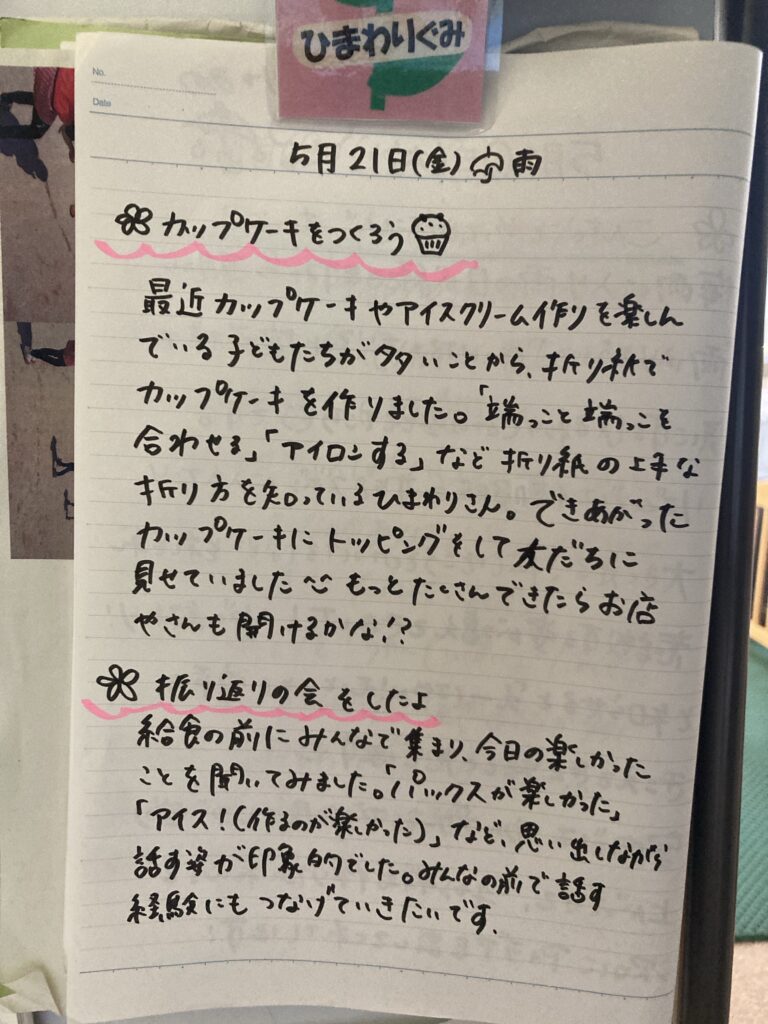 ひまわりぐみ
No.
Date
5月21日(金) 雨
カップケーキをつくろう
最近カップケーキやアイスクリーム作りを楽しん
でいる子どもたちが多いことから、折り紙で
カップケーキを作りました。「端っこと端っこを
合わせる」「アイロンする」など折り紙の上手な
折り方を知っているひまわりさん。できあがった
カップケーキにトッピングをして友だちに
見せていました もっとたくさんできたらお店
やさんも開けるかな!?
振り返りの会をしたよ
給食の前にみんなで集まり、今日の楽しかった
ことを聞いてみました。「パックスが楽しかった」
「アイス!(作るのが楽しかった)」など、思い出しながら
話す姿が印象的でした。みんなの前で話す
経験にもつなげていきたいです。